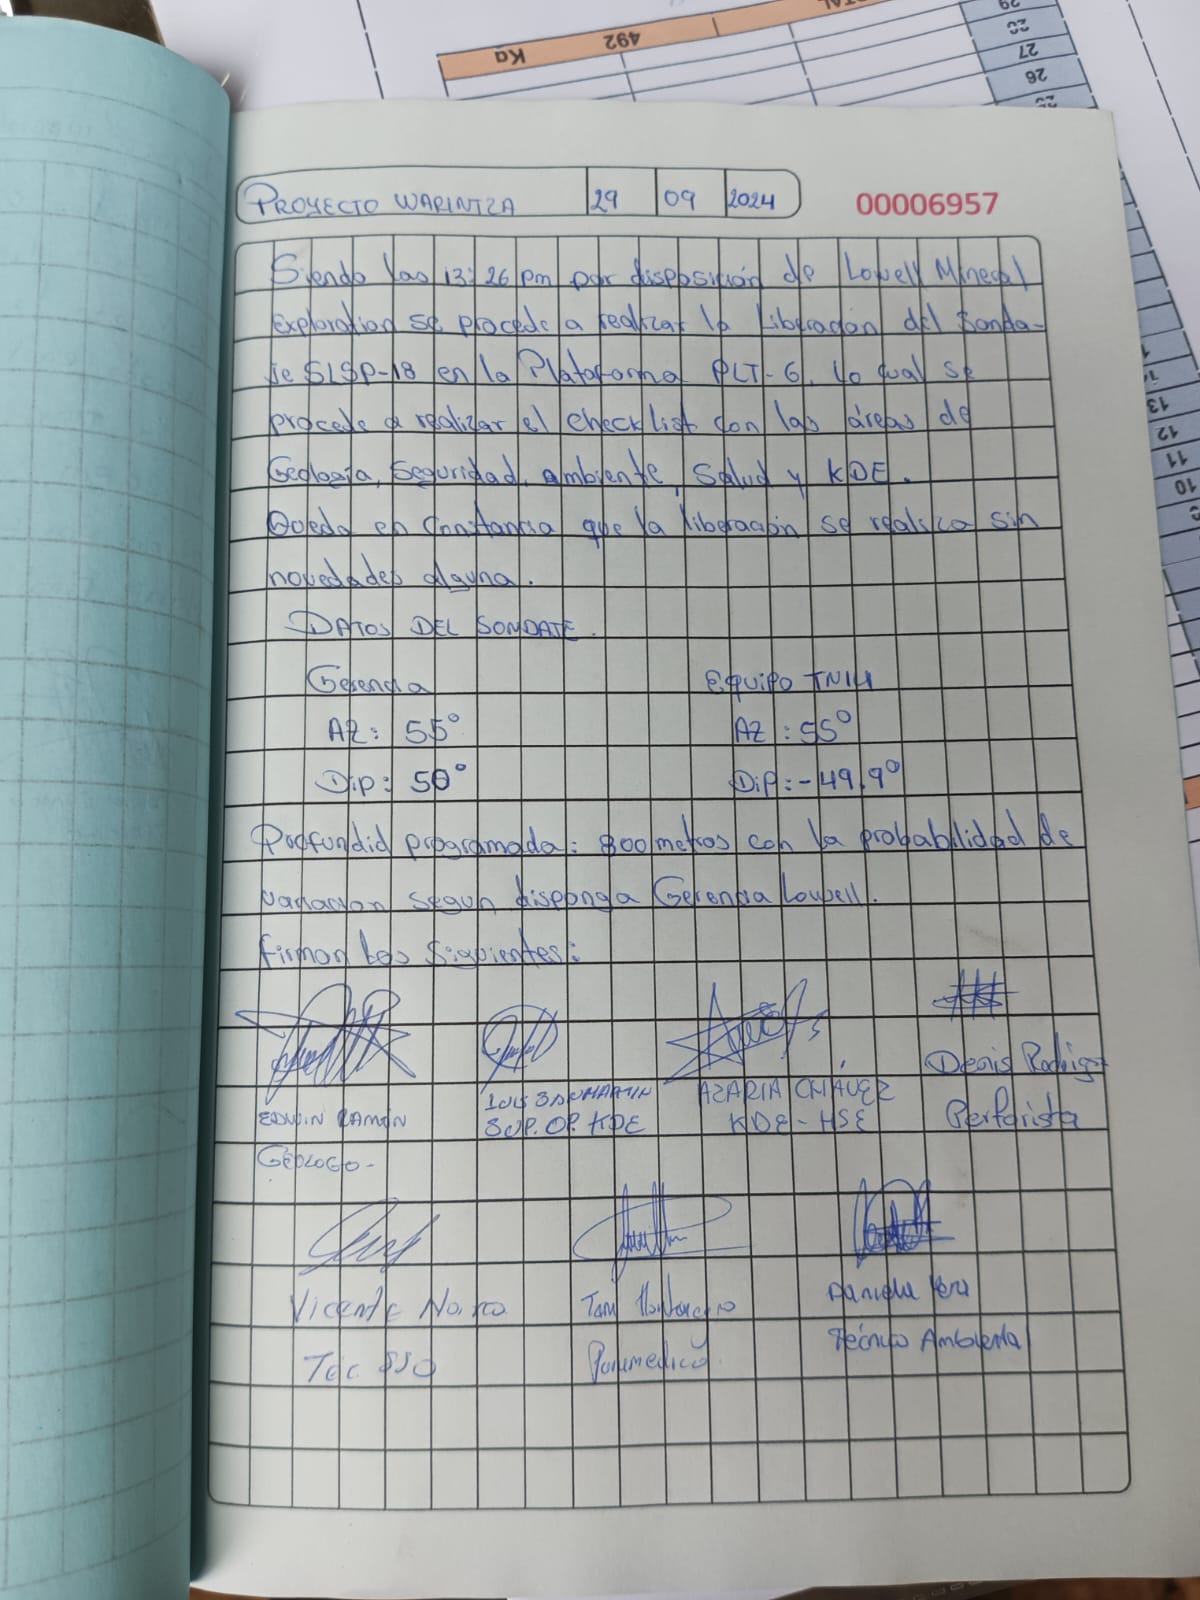 TOTAL
Kg 492
29
28
27
26
PROYECTO WARINTZA 29 09 2024 00006957
Siendo las 13:26 pm por disposición de Lowell Mineral
Exploration se procede a realizar la Liberación del Sonda-
je SLSP-18 en la Plataforma PLT-6, lo cual se
procede a realizar el checklist con las áreas de
Geología, Seguridad, ambiente, Salud y KDE.
Queda en Constancia que la liberación se realizo sin
novedades alguna.
DATOS DEL SONDATE.
Gerencia Equipo TN14
AZ: 55° AZ: 55°
Dip: 50° Dip: -49.9°
Profundid programada: 800 metros con la probabilidad de
variacion segun disponga Gerencia Lowell.
firman los siguientes:
EDWIN RAMÓN LUIS SANMARTIN AZARIA CHÁVEZ Denis Rodrigo
GEÓLOGO- SUP. OP. KDE KDE-HSE Perforista
Vicente Daniela Vera
Tec. SSO Paramedico Técnico Ambiental
13
12
11
10